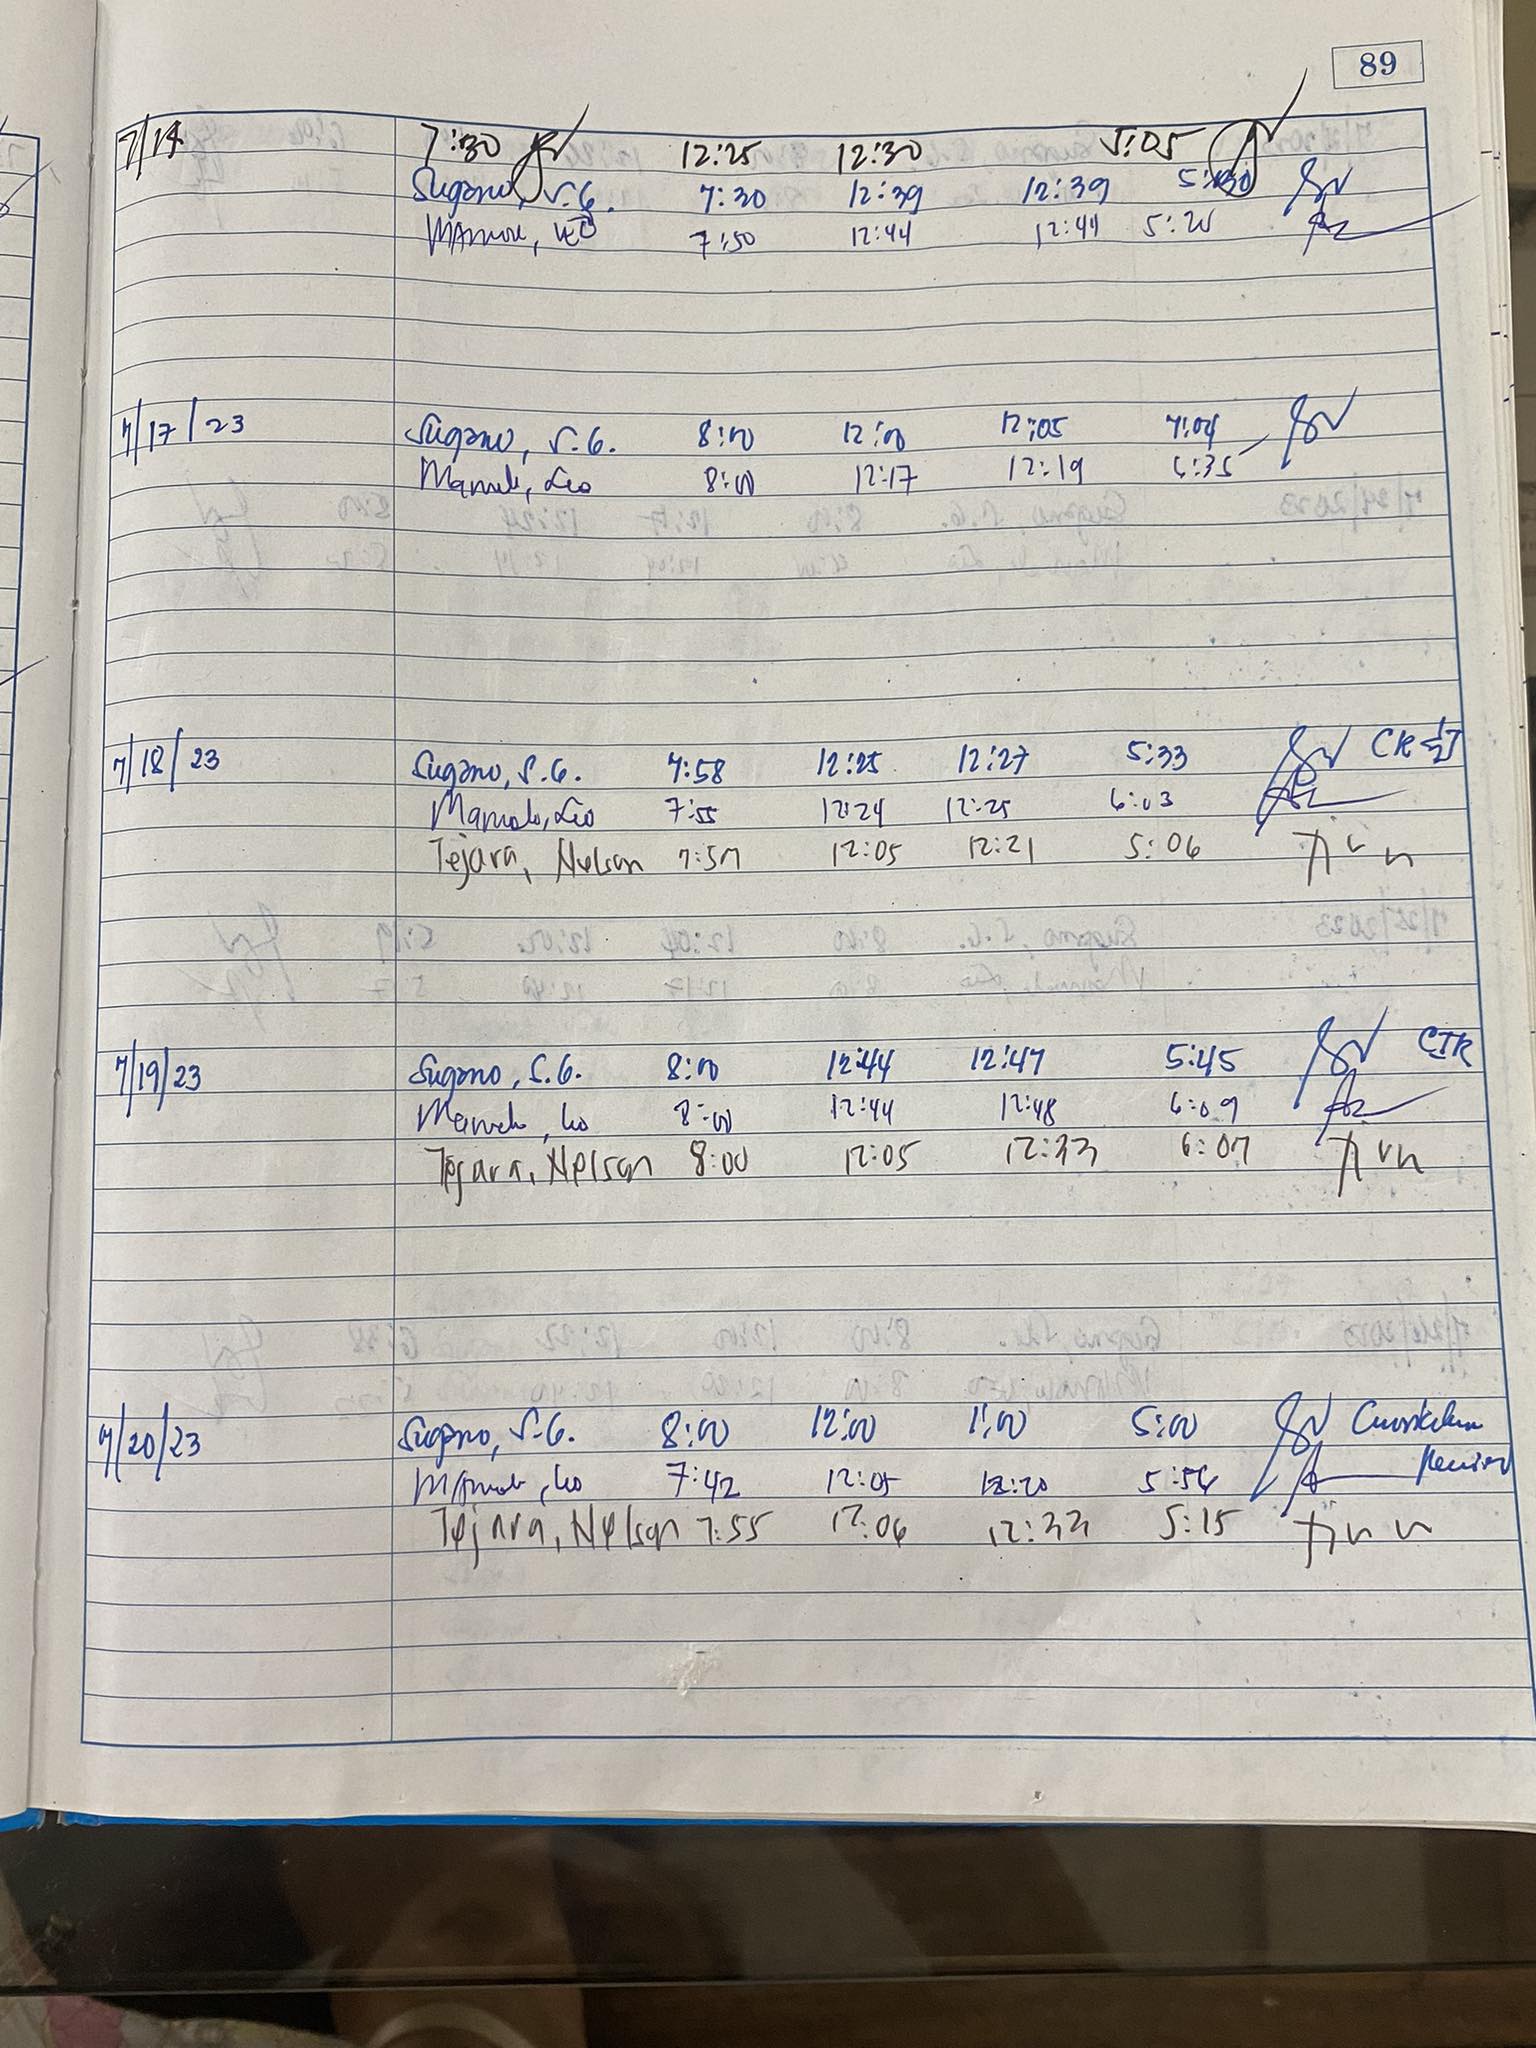 89
7/14 7:30 12:25 12:30 5:05
Sugano, S.G. 7:30 12:39 12:39 5:30
Leo 7:50 12:44 12:44 5:20
7/17/23 Sugano, S.G. 8:00 12:00 12:05 7:04
Leo 8:00 12:17 12:19 6:35
7/18/23 Sugano, S.G. 7:58 12:25 12:27 5:33
Leo 7:55 12:24 12:25 6:03
Tejara, Nelson 7:57 12:05 12:21 5:06
7/19/23 Sugano, S.G. 8:00 12:44 12:47 5:45
Leo 8:00 12:44 12:48 6:09
Tejara, Nelson 8:00 12:05 12:33 6:07
7/20/23 Sugano, S.G. 8:00 12:00 1:00 5:00 Curriculum
7:42 12:05 12:20 5:56 Review
Tejara, Nelson 7:55 12:06 12:33 5:15